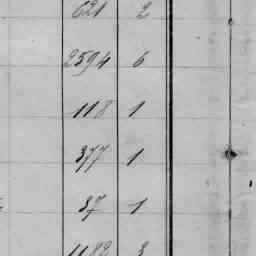 621 2
2594 6
118 1
377 1
37 1
1182 3